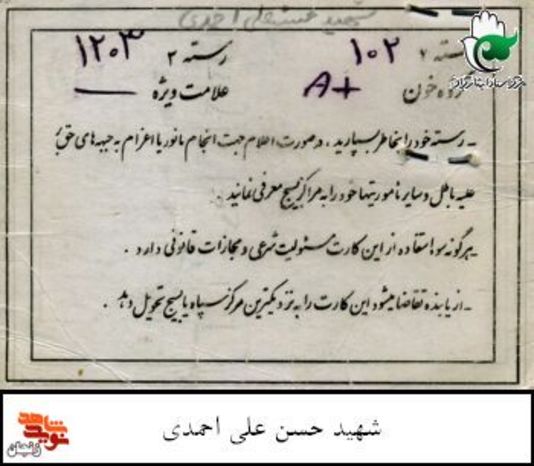 شهید حسنعلی احمدی
رسته ۱۰۲
رسته ۲ ۱۲۰۳
گروه خون A+
علامت ویژه —
- رسته خود را بخاطر بسپارید، در صورت اعلام جهت انجام مانور یا اعزام به جبهه های حق
علیه باطل و سایر ماموریتها خود را به مراکز بسیج معرفی نمائید.
- هرگونه سوء استفاده از این کارت مسئولیت شرعی و مجازات قانونی دارد.
- از یابنده تقاضا میشود این کارت را به نزدیکترین مرکز سپاه یا بسیج تحویل دهد.
شهید حسن علی احمدی
نوید شاهد
زنجان